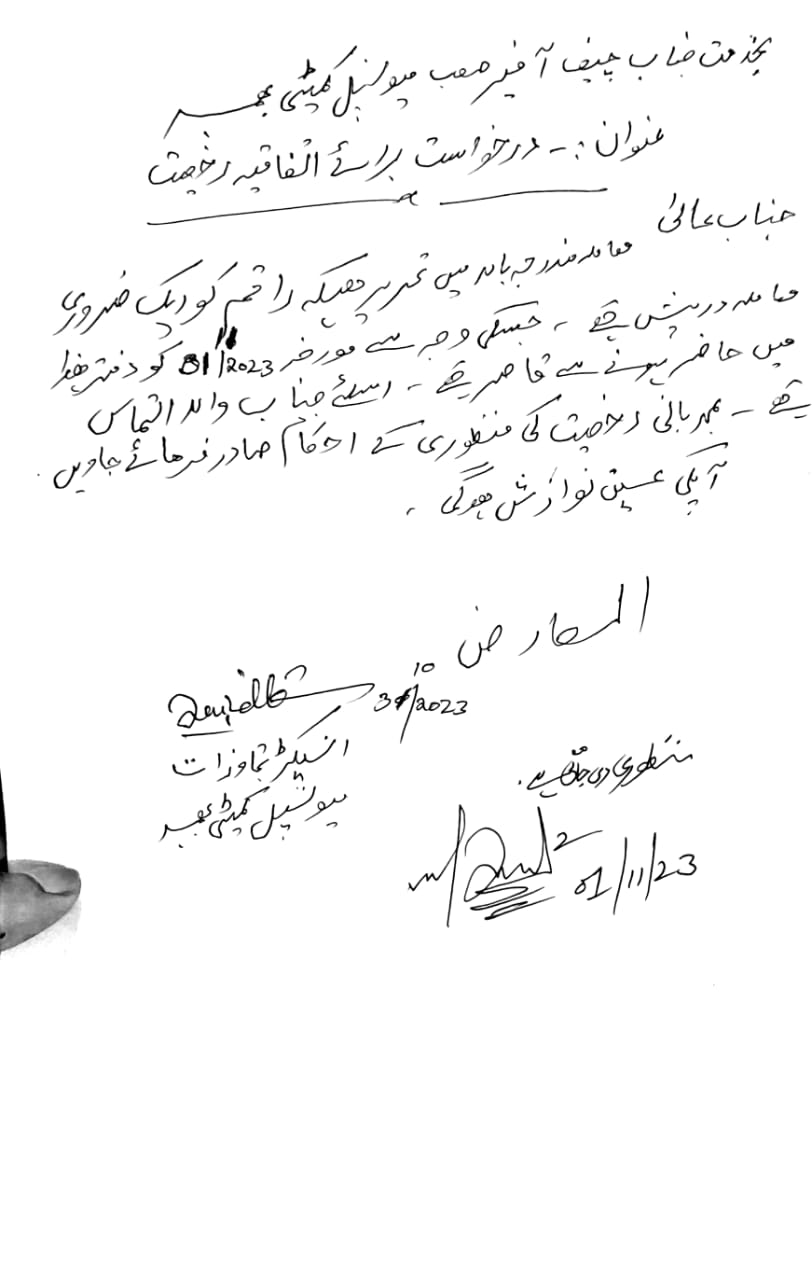 بخدمت جناب چیف آفیسر صاحب میونسپل کمیٹی بھمبر
عنوان :- درخواست برائے اتفاقیہ رخصت
جناب عالیٰ
معاملہ مندرجہ بالا میں تحریر ھیکہ راقم کو ایک ضروری
معاملہ درپیش ھے ۔ جسکی وجہ سے مورخہ 01/11/2023 کو دفتر ھذا
میں حاضر ہونے سے قاصر ھے ۔ اسلئے جناب والا التماس
ھے ۔ مہربانی رخصت کی منظوری کے احکام صادر فرمائے جاویں ۔
آپکی عین نوازش ھوگی ۔
المعارض
31/10/2023
انسپکٹر تجاوزات
میونسپل کمیٹی بھمبر
منظوری دی جاتی ہے۔
01/11/23